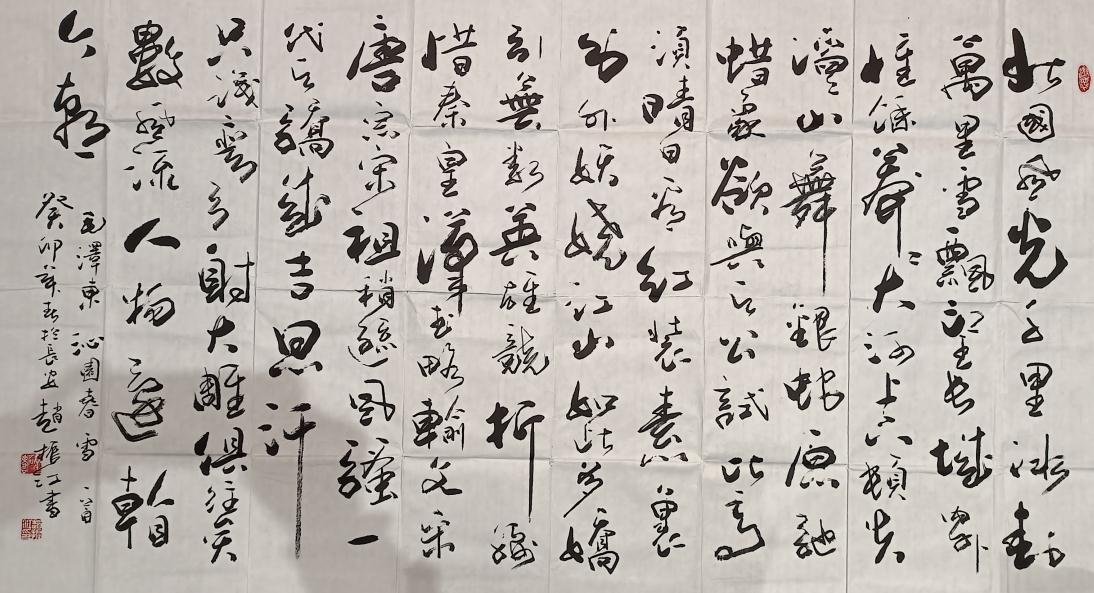 北國風光千里冰封
萬里雪飄望長城內外
惟餘莽莽大河上下頓失
滔滔山舞銀蛇原馳
蜡象欲與天公試比高
須晴日看紅裝素裹
分外妖嬈江山如此多嬌
引無數英雄競折腰
惜秦皇漢武略輸文采
唐宗宋祖稍遜風騷一
代天驕成吉思汗
只識彎弓射大雕俱往矣
數風流人物還看
今朝
毛澤東 沁園春 雪 一首
癸卯春於長安趙振江書